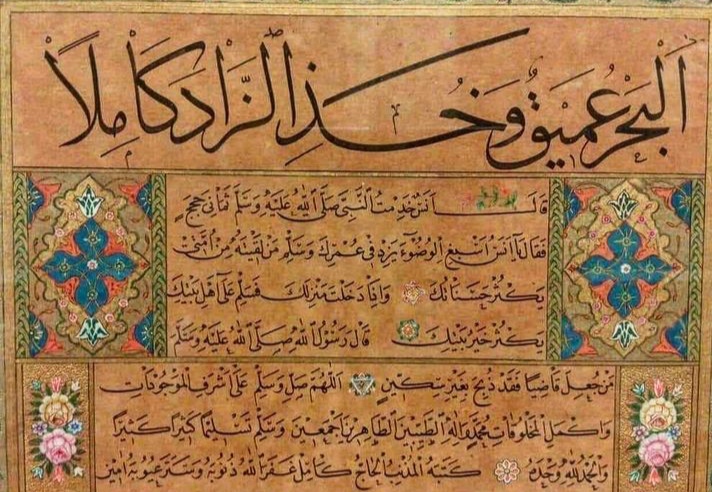 اَلْبَحْرُ عَمِيقٌ وَخُذِ الزَّادَ كَامِلاً
قَالَ اَنَسٌ خَدَمْتُ النَّبِيَّ صَلَّى اللهُ عَلَيْهِ وَسَلَّمَ ثَمَانِيَ حِجَجٍ
فَقَالَ يَا اَنَسُ اَسْبِغِ الْوُضُوءَ يَزِدْ فِي عُمْرِكَ وَسَلِّمْ مَنْ لَقِيتَهُ مِنْ اُمَّتِي
يَكْثُرْ حَسَنَاتُكَ وَاِذَا دَخَلْتَ مَنْزِلَكَ فَسَلِّمْ عَلَى اَهْلِ بَيْتِكَ
يَكْثُرْ خَيْرُ بَيْتِكَ قَالَ رَسُولُ اللهِ صَلَّى اللهُ عَلَيْهِ وَسَلَّمَ
مَنْ جُعِلَ قَاضِيًا فَقَدْ ذُبِحَ بِغَيْرِ سِكِّينٍ اَللّٰهُمَّ صَلِّ وَسَلِّمْ عَلَى اَشْرَفِ الْمَوْجُودَاتِ
وَاَكْمَلِ الْمَخْلُوقَاتِ مُحَمَّدٍ وَاٰلِهِ الطَّيِّبِينَ الطَّاهِرِينَ اَجْمَعِينَ وَسَلِّمْ تَسْلِيمًا كَثِيرًا كَثِيرًا
وَالْحَمْدُ لِلّٰهِ وَحْدَهُ كَتَبَهُ الْمُذْنِبُ الْحَاجُّ كَامِل غَفَرَ اللهُ ذُنُوبَهُ وَسَتَرَ عُيُوبَهُ اٰمِينَ